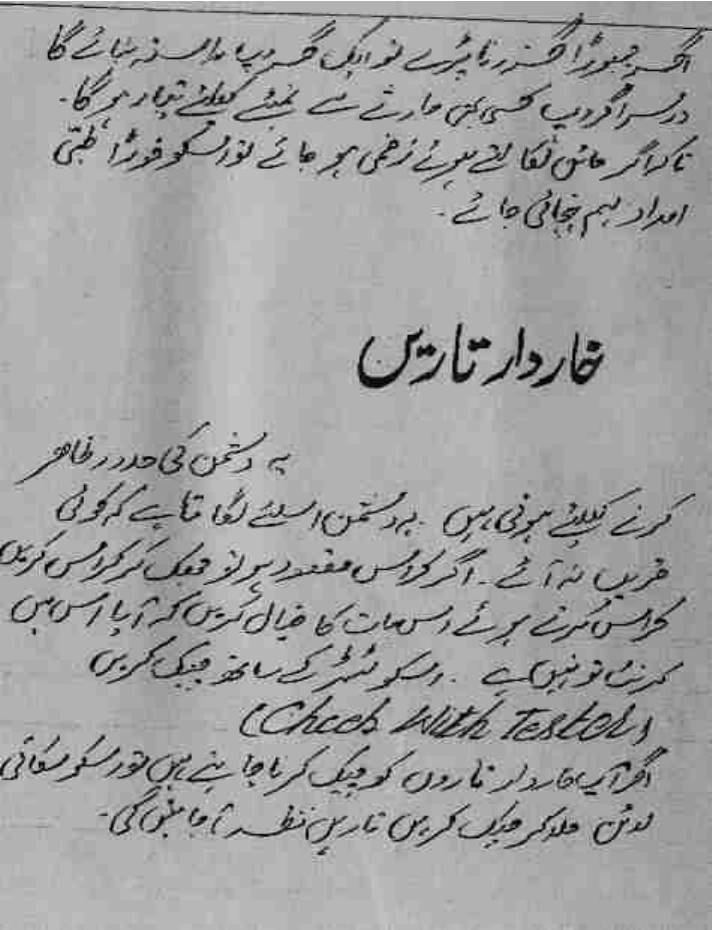 اگر مجبوراً گزرنا پڑے تو ایک گروپ راستہ بنائے گا
دوسرا گروپ کسی بھی حادثے سے نمٹنے کیلئے تیار ہوگا۔
تاکہ اگر مائن نکالتے ہوئے زخمی ہو جائے تو اسکو فوراً طبّی
امداد بہم پہنچائی جائے۔
خاردار تاریں
یہ دشمن کی حدود ظاہر
کرنے کیلئے ہوتی ہیں۔ یہ دشمن اسلئے لگاتا ہے کہ کوئی
قریب نہ آئے۔ اگر کراس مقصود ہو تو چیک کر کراس کریں
کراس کرتے ہوئے اس بات کا خیال کریں کہ آیا اس میں
کرنٹ تو نہیں ہے۔ اسکو ٹسٹر کے ساتھ چیک کریں
(Check With Tester)
اگر آپ خاردار تاروں کو چیک کرنا چاہتے ہیں تو اسکو
لائن چلا کر چیک کریں تاریں نظر آ جائیں گی۔